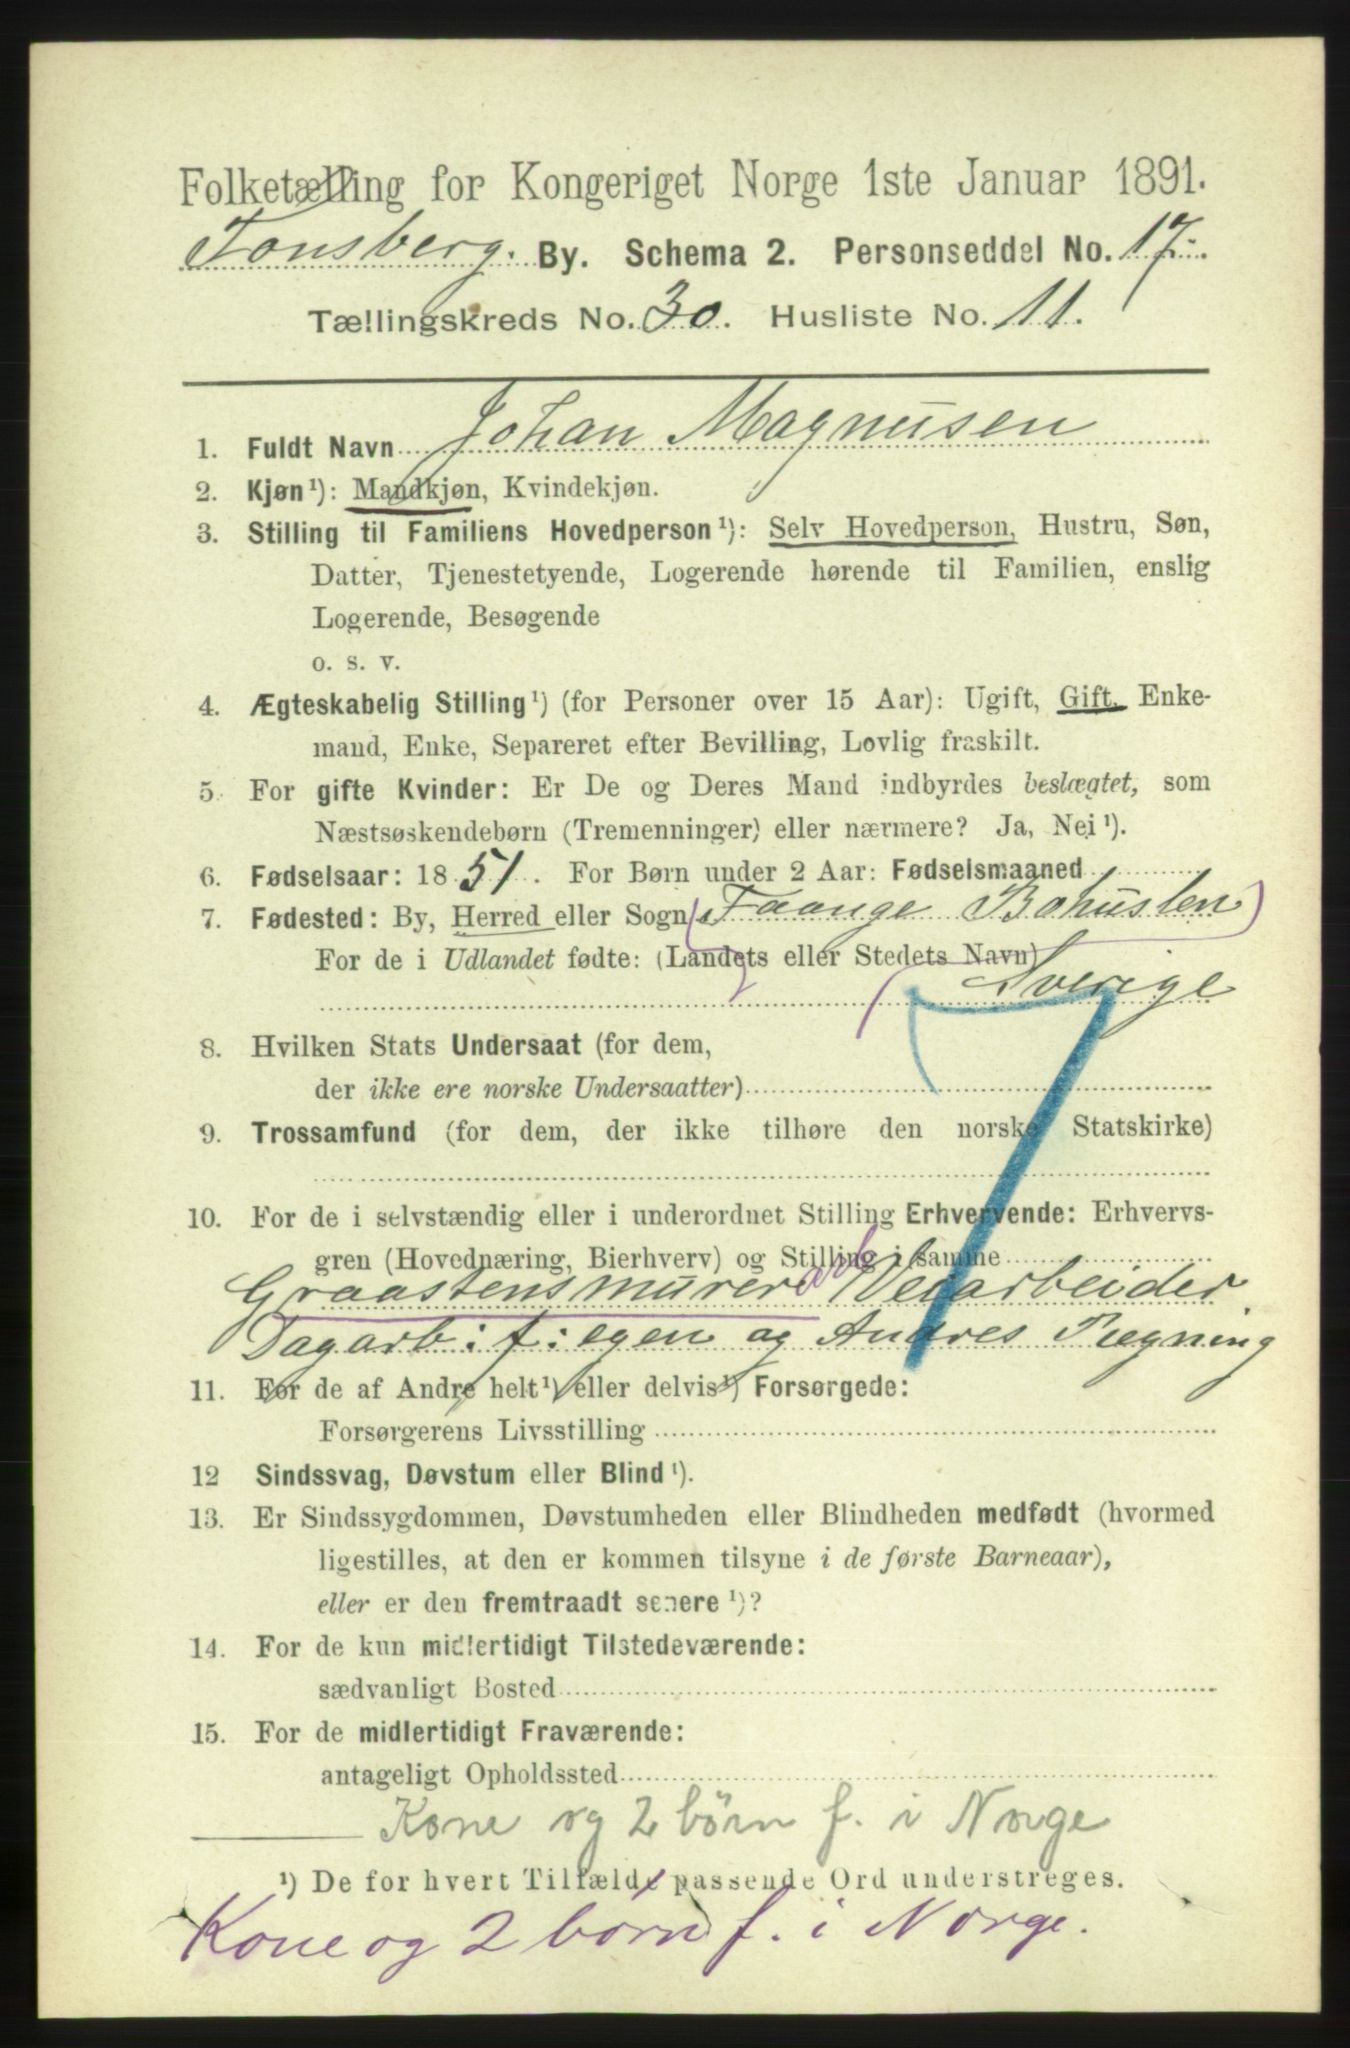 Folketælling for Kongeriget Norge 1ste Januar 1891.
Tønsberg. By. Schema 2. Personseddel No. 17.
Tællingskreds No. 30. Husliste No. 11.
1. Fuldt Navn Johan Magnusen
2. Kjøn¹): Mandkjøn, Kvindekjøn.
3. Stilling til Familiens Hovedperson¹): Selv Hovedperson, Hustru, Søn,
Datter, Tjenestetyende, Logerende hørende til Familien, enslig
Logerende, Besøgende
o. s. v.
4. Ægteskabelig Stilling¹) (for Personer over 15 Aar): Ugift, Gift, Enke-
mand, Enke, Separeret efter Bevilling, Lovlig fraskilt.
5. For gifte Kvinder: Er De og Deres Mand indbyrdes beslægtet, som
Næstsøskendebørn (Tremenninger) eller nærmere? Ja, Nei¹).
6. Fødselsaar: 1851. For Børn under 2 Aar: Fødselsmaaned
7. Fødested: By, Herred eller Sogn (Faange Bohuslen)
For de i Udlandet fødte: (Landets eller Stedets Navn)
Sverige
8. Hvilken Stats Undersaat (for dem,
der ikke ere norske Undersaatter)
9. Trossamfund (for dem, der ikke tilhøre den norske Statskirke)
10. For de i selvstændig eller i underordnet Stilling Erhvervende: Erhvervs-
gren (Hovednæring, Bierhverv) og Stilling i samme
Graastensmurer arb Veiarbeider
Dagarb: f: egen og Andres Regning
11. For de af Andre helt¹) eller delvis¹) Forsørgede:
Forsørgerens Livsstilling
12 Sindssvag, Døvstum eller Blind¹).
13. Er Sindssygdommen, Døvstumheden eller Blindheden medfødt (hvormed
ligestilles, at den er kommen tilsyne i de første Barneaar),
eller er den fremtraadt senere¹)?
14. For de kun midlertidigt Tilstedeværende:
sædvanligt Bosted
15. For de midlertidigt Fraværende:
antageligt Opholdssted
Kone og 2 børn f. i Norge
¹) De for hvert Tilfælde passende Ord understreges.
Kone og 2 børn f. i Norge.